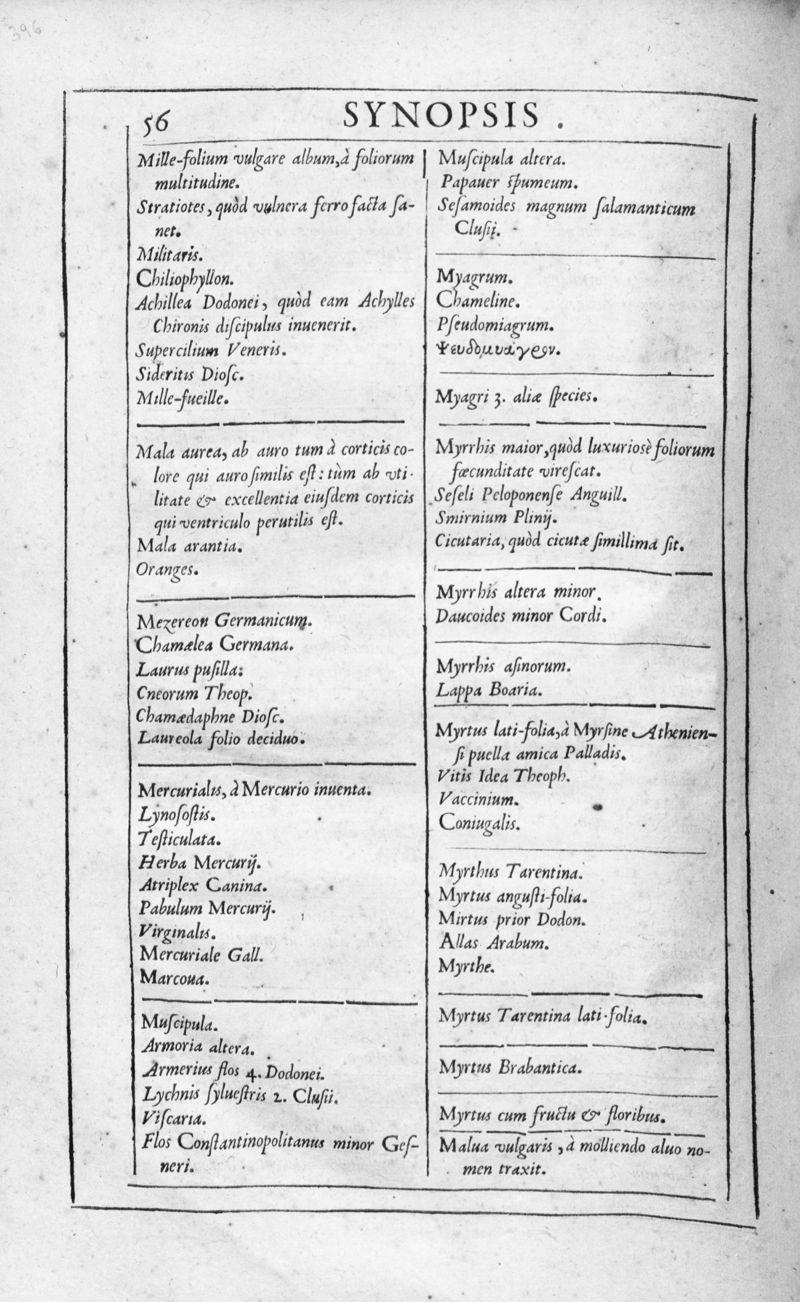 396
56
SYNOPSIS .
Mille-folium vulgare album, à foliorum
multitudine.
Stratiotes, quòd vulnera ferro facta ſa-
net.
Militaris.
Chiliophyllon.
Achillea Dodonei, quòd eam Achylles
Chironis diſcipulus inuenerit.
Supercilium Veneris.
Sideritis Dioſc.
Mille-fueille.
Mala aurea, ab auro tum à corticis co-
lore qui auro ſimilis eſt: tùm ab vti-
litate & excellentia eiuſdem corticis
qui ventriculo perutilis eſt.
Mala arantia.
Oranges.
Mezereon Germanicum.
Chamælea Germana.
Laurus puſilla:
Cneorum Theop.
Chamædaphne Dioſc.
Laureola folio deciduo.
Mercurialis, à Mercurio inuenta.
Lynoſoſtis.
Teſticulata.
Herba Mercurij.
Atriplex Canina.
Pabulum Mercurij.
Virginalis.
Mercuriale Gall.
Marcoua.
Muſcipula.
Armoria altera.
Armerius flos 4. Dodonei.
Lychnis ſylueſtris 2. Cluſii.
Viſcaria.
Flos Conſtantinopolitanus minor Geſ-
neri.
Muſcipula altera.
Papauer ſpumeum.
Seſamoides magnum ſalamanticum
Cluſij.
Myagrum.
Chameline.
Pſeudomiagrum.
Ψευδομυάγρον.
Myagri 3. aliæ ſpecies.
Myrrhis maior, quòd luxurioſè foliorum
fœcunditate vireſcat.
Seſeli Peloponenſe Anguill.
Smirnium Plinij.
Cicutaria, quòd cicutæ ſimillima ſit.
Myrrhis altera minor.
Daucoides minor Cordi.
Myrrhis aſinorum.
Lappa Boaria.
Myrtus lati-folia, à Myrſine Athenien-
ſi puella amica Palladis.
Vitis Idea Theoph.
Vaccinium.
Coniugalis.
Myrthus Tarentina.
Myrtus anguſti-folia.
Mirtus prior Dodon.
Allas Arabum.
Myrthe.
Myrtus Tarentina lati-folia.
Myrtus Brabantica.
Myrtus cum fructu & floribus.
Malua vulgaris, à molliendo aluo no-
men traxit.